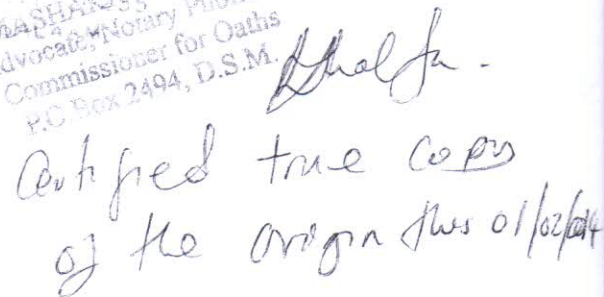 Advocate, Notary Public
Commissioner for Oaths
P.O. Box 2494, D.S.M.
Certified true copy
of the origin this 01/02/2014